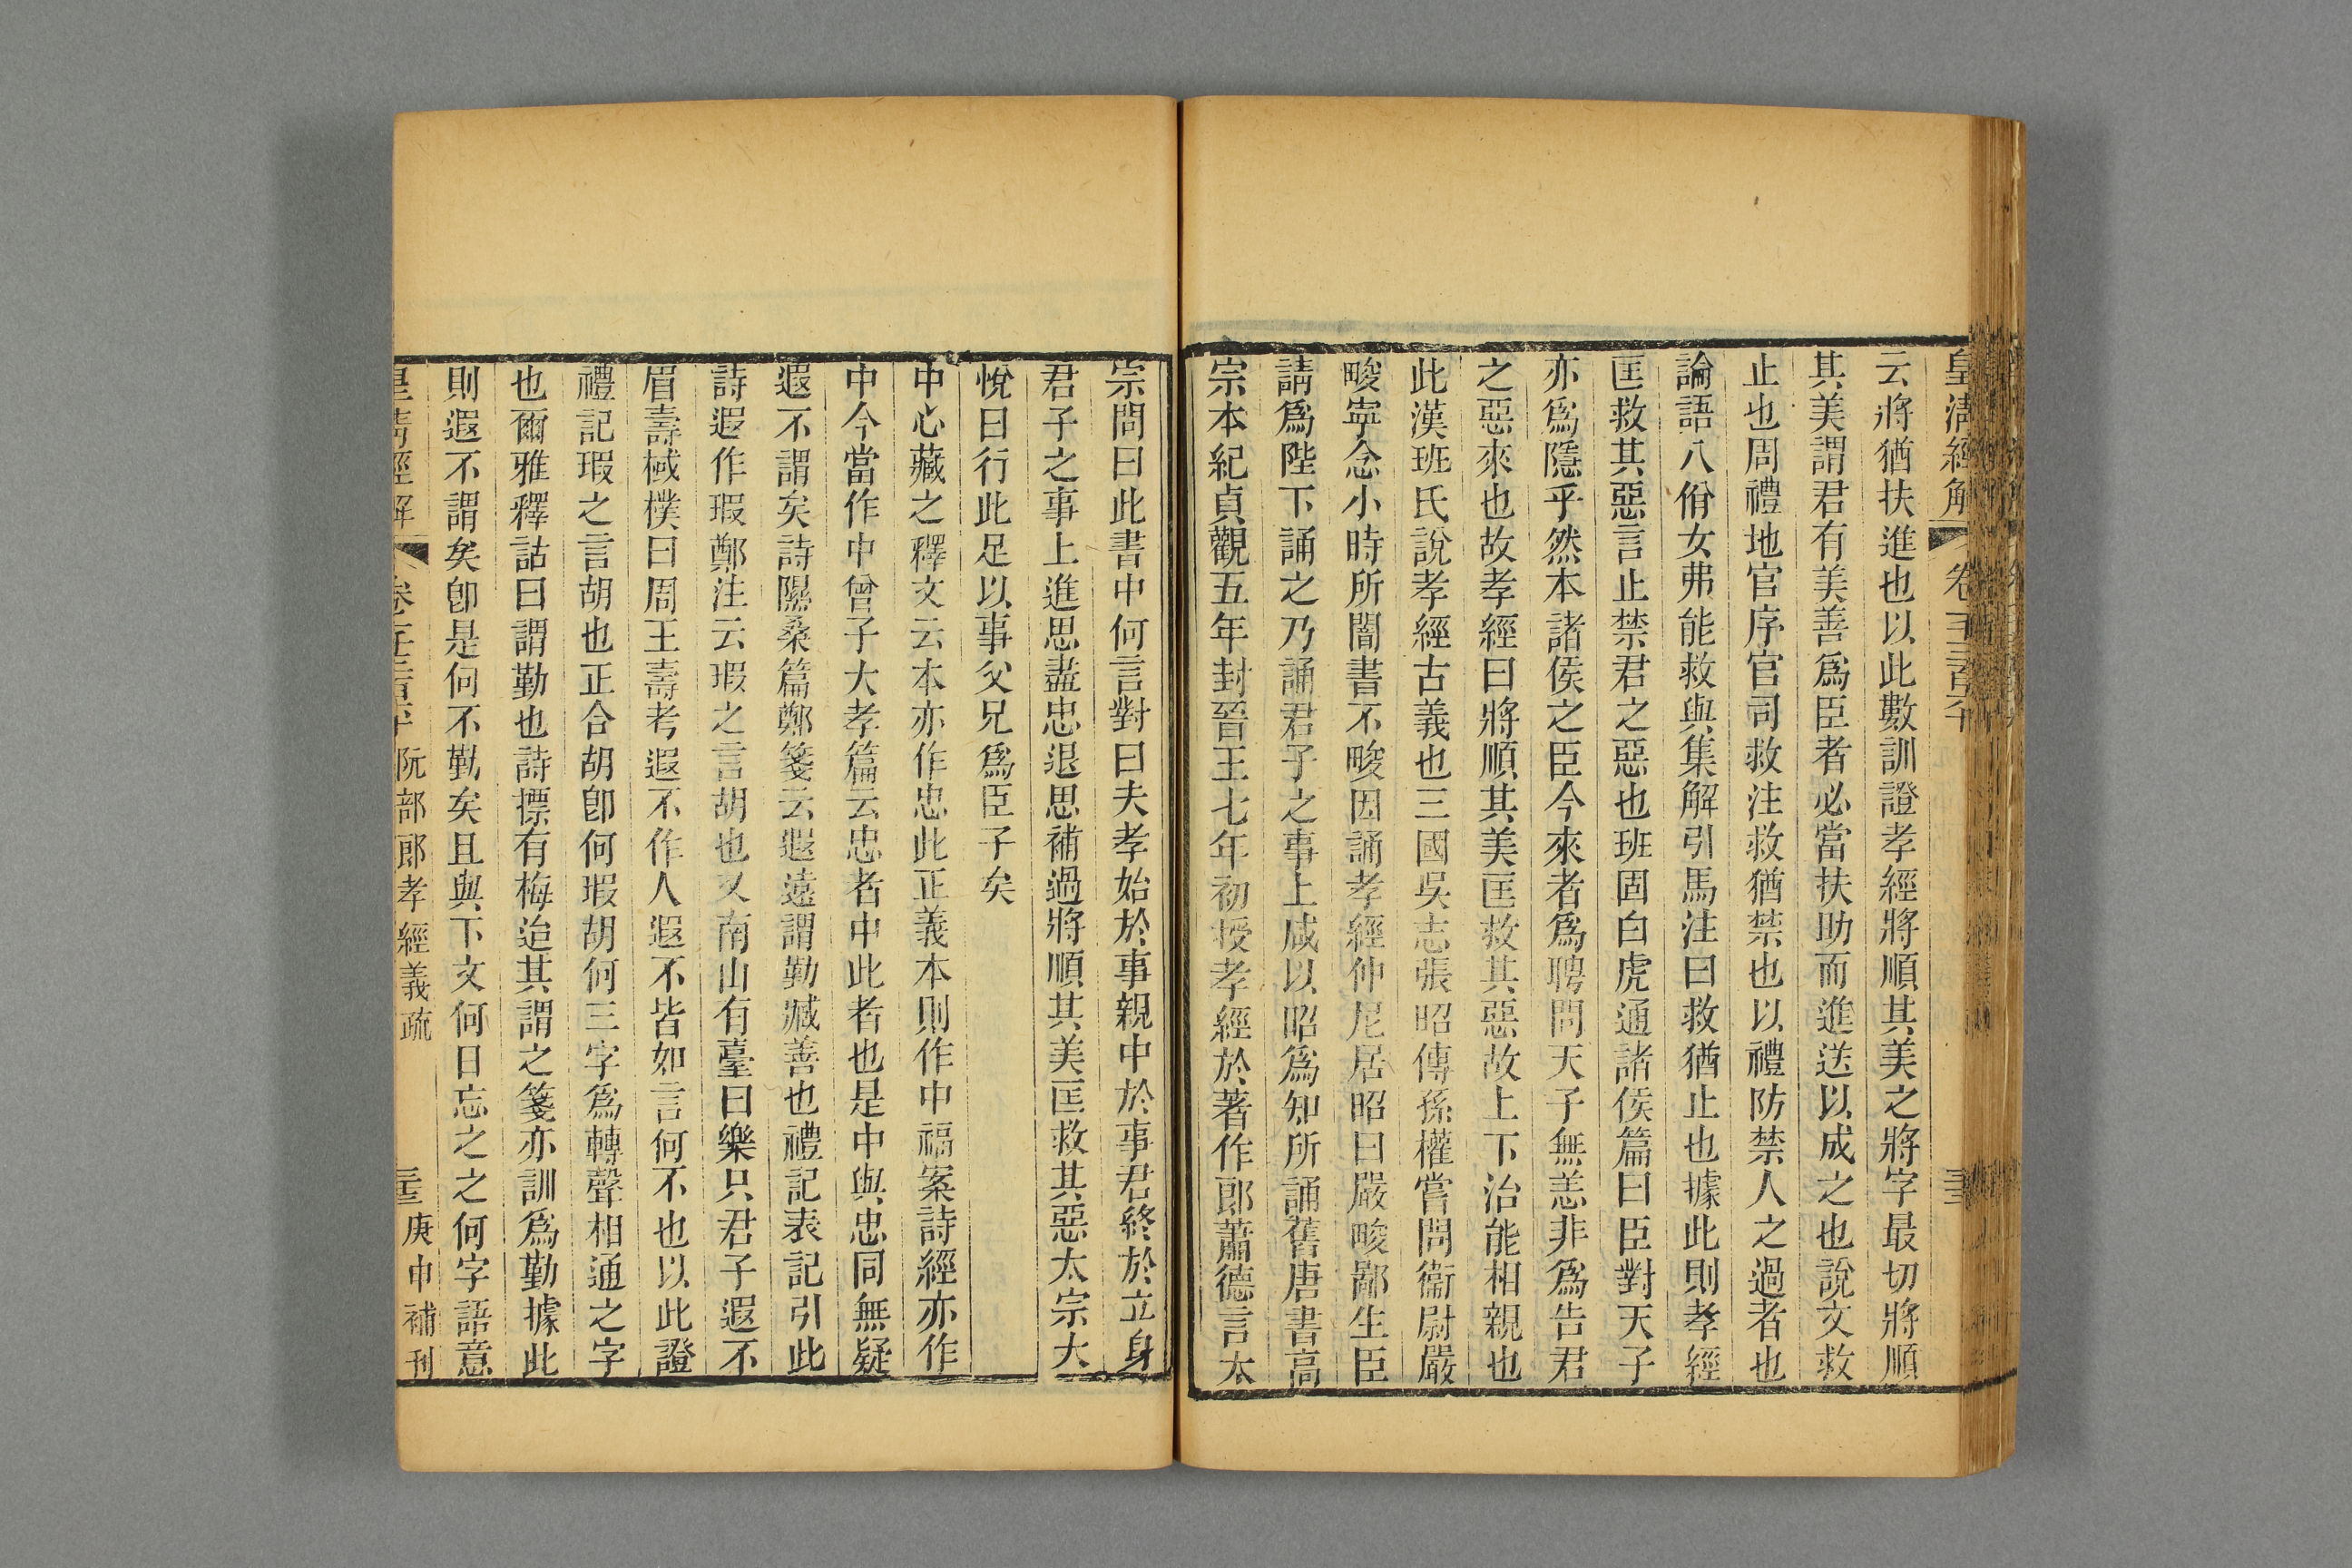 皇清經解 卷
云將猶扶進也以此數訓證孝經將順其美之將字最切將順
其美謂君有美善爲臣者必當扶助而進送以成之也說文救
止也周禮地官序官司救注救猶禁也以禮防禁人之過者也
論語八佾女弗能救與集解引馬注曰救猶止也據此則孝經
匡救其惡言止禁君之惡也班固白虎通諸侯篇曰臣對天子
亦爲隱乎然本諸侯之臣今來者爲聘問天子無恙非爲告君
之惡來也故孝經曰將順其美匡救其惡故上下治能相親也
此漢班氏說孝經古義也三國吳志張昭傳孫權嘗問衞尉嚴
畯寧念小時所闇書不畯因誦孝經仲尼居昭曰嚴畯鄙生臣
請爲陛下誦之乃誦君子之事上咸以昭爲知所誦舊唐書高
宗本紀貞觀五年封晉王七年初授孝經於著作郎蕭德言太
宗問曰此書中何言對曰夫孝始於事親中於事君終於立身
君子之事上進思盡忠退思補過將順其美匡救其惡太宗大
悅曰行此足以事父兄爲臣子矣
中心藏之釋文云本亦作忠此正義本則作中福案詩經亦作
中今當作中曾子大孝篇云忠者中此者也是中與忠同無疑
遐不謂矣詩隰桑篇鄭箋云遐遠謂勤臧善也禮記表記引此
詩遐作瑕鄭注云瑕之言胡也又南山有臺曰樂只君子遐不
眉壽棫樸曰周王壽考遐不作人遐不皆如言何不也以此證
禮記瑕之言胡也正合胡卽何瑕胡何三字爲轉聲相通之字
也爾雅釋詁曰謂勤也詩摽有梅迨其謂之箋亦訓爲勤據此
則遐不謂矣卽是何不勤矣且與下文何日忘之之何字語意
皇清經解 卷 阮部郎孝經義疏 庚申補刊